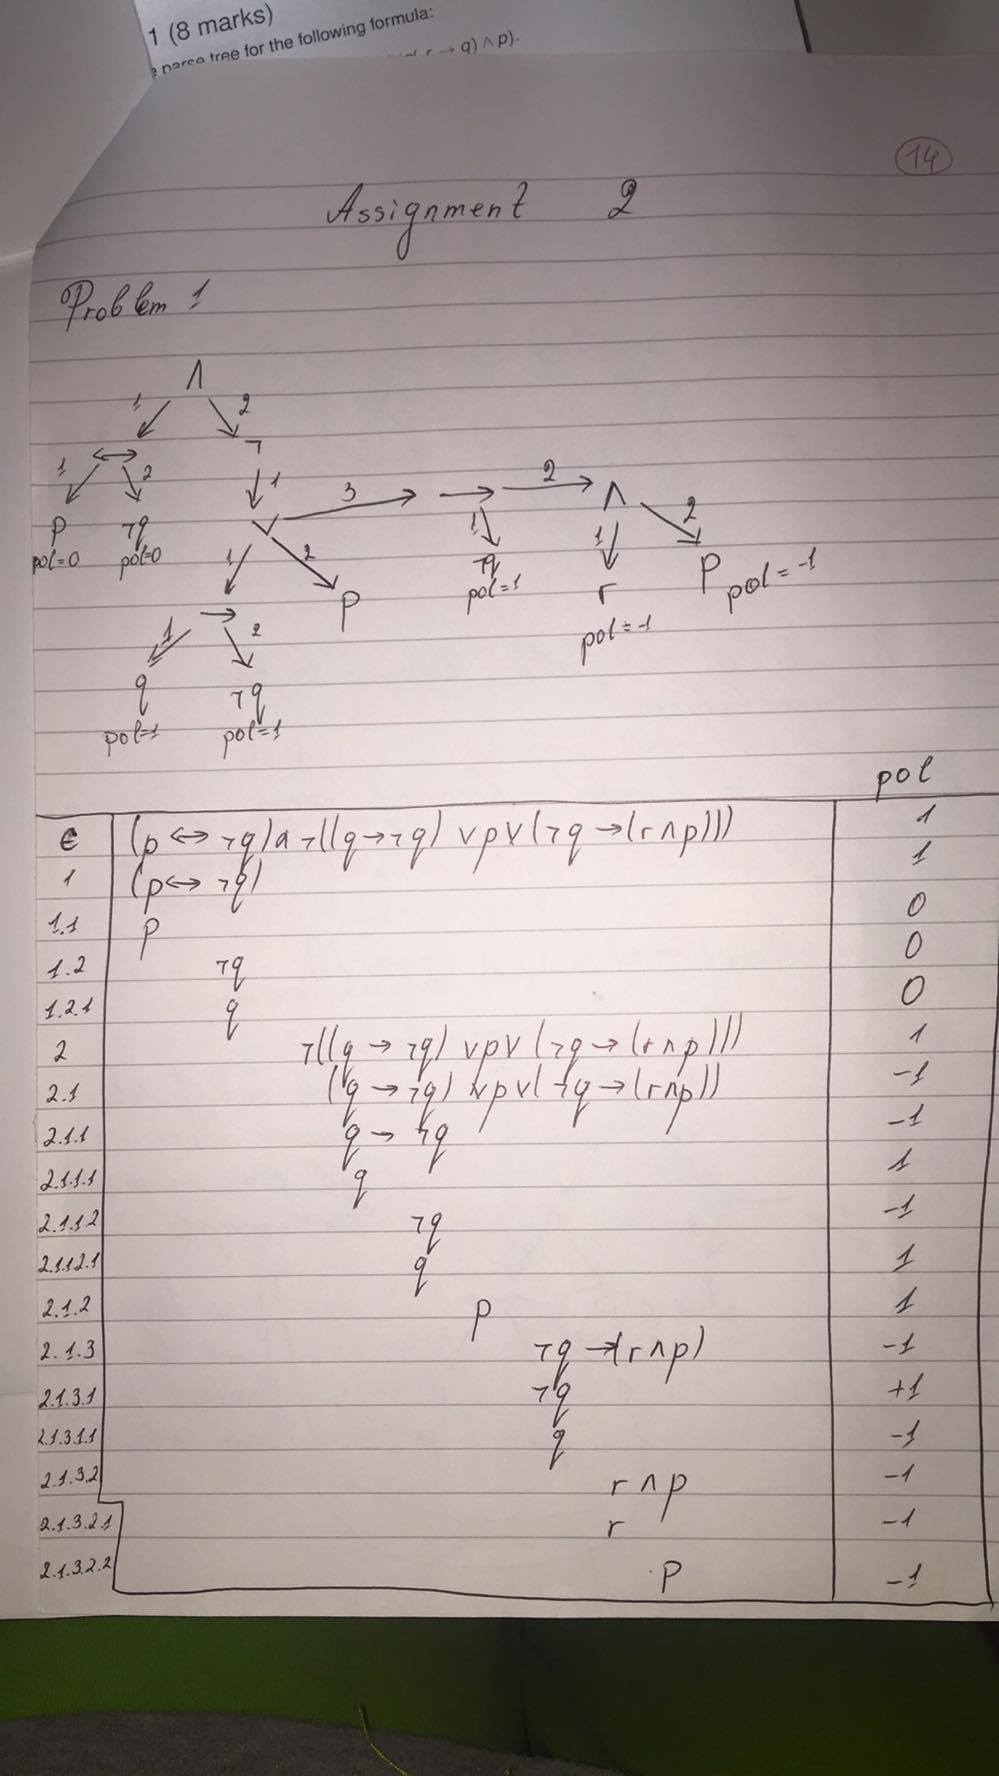 1 (8 marks)
parse tree for the following formula:
r → q) ∧ p).
14
Assignment 2
Problem 1
∧
1 2
↔ ¬
1 2 1
p ¬q ∨ 3 → 2 ∧
pol=0 pol=0 1 2 1 1 2
→ p ¬q r p
pol=1 pol=-1 pol=-1
1 2
q ¬q
pol=1 pol=1
pol
ε (p ↔ ¬q) ∧ ¬((q → ¬q) ∨ p ∨ (¬q → (r ∧ p))) 1
1 (p ↔ ¬q) 1
1.1 p 0
1.2 ¬q 0
1.2.1 q 0
2 ¬((q → ¬q) ∨ p ∨ (¬q → (r ∧ p))) 1
2.1 (q → ¬q) ∨ p ∨ (¬q → (r ∧ p)) -1
2.1.1 q → ¬q -1
2.1.1.1 q 1
2.1.1.2 ¬q -1
2.1.1.2.1 q 1
2.1.2 p 1
2.1.3 ¬q → (r ∧ p) -1
2.1.3.1 ¬q +1
2.1.3.1.1 q -1
2.1.3.2 r ∧ p -1
2.1.3.2.1 r -1
2.1.3.2.2 p -1